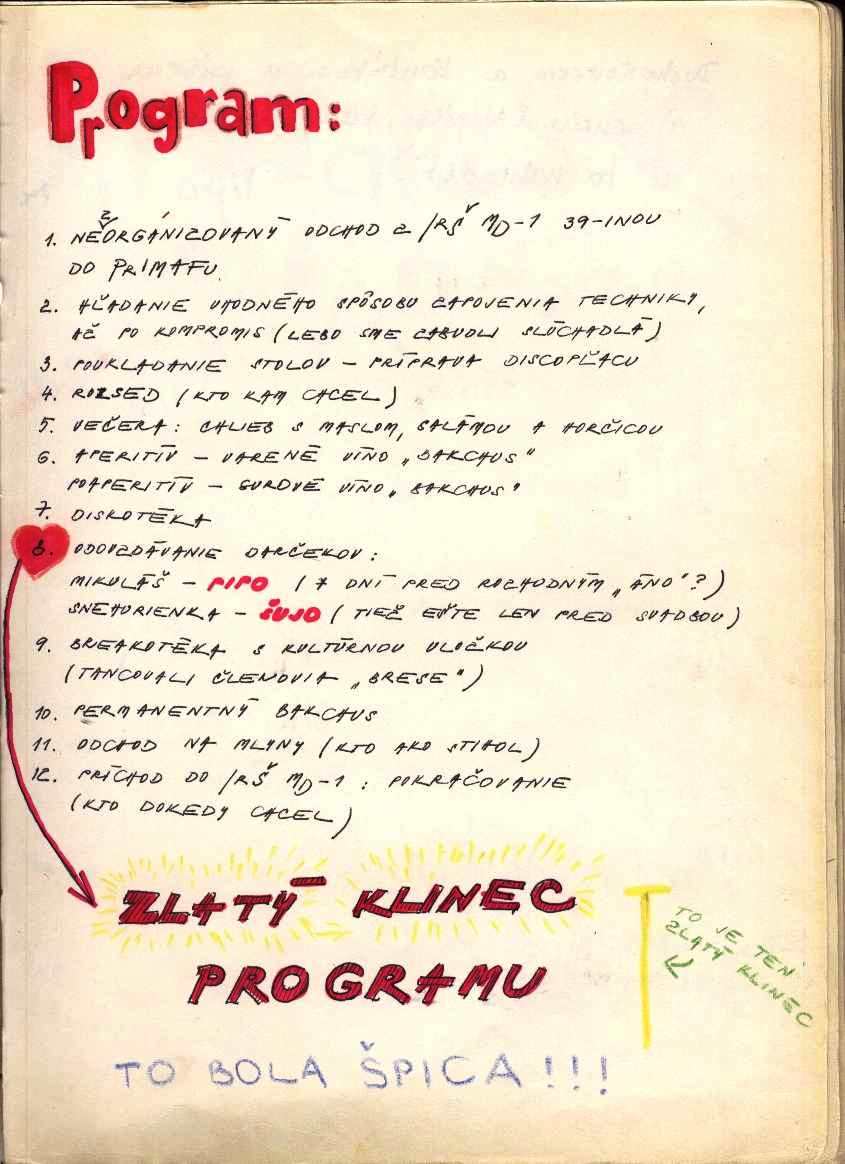 Program:
1. NEZORGÁNIZOVANÝ ODCHOD Z IRŠ MD-1 39-INOU
DO PRIMAFU
2. HĽADANIE VHODNÉHO SPÔSOBU ZAPOJENIA TECHNIKY,
AŽ PO KOMPROMIS (LEBO SME ZABUDLI SLÚCHADLÁ)
3. POUKLADANIE STOLOV – PRÍPRAVA DISCOPĽACU
4. ROZSED (KTO KAM CHCEL)
5. VEČERA: CHLIEB S MASLOM, SALÁMOU A HORČICOU
6. APERITÍV – VARENÉ VÍNO „BAKCHUS"
POAPERITÍV – SUROVÉ VÍNO „BAKCHUS"
7. DISKOTÉKA
8. ODOVZDÁVANIE DARČEKOV:
MIKULÁŠ – PIPO (7 DNÍ PRED ROZHODNÝM „ÁNO"?)
SNEHURIENKA – ŠUJO (TIEŽ EŠTE LEN PRED SVADBOU)
9. BREAKOTÉKA S KULTÚRNOU VLOČKOU
(TANCOVALI ČLENOVIA „BRESE")
10. PERMANENTNÝ BAKCHUS
11. ODCHOD NA MLYNY (KTO AKO STIHOL)
12. PRÍCHOD DO IRŠ MD-1: POKRAČOVANIE
(KTO DOKEDY CHCEL)
ZLATÝ KLINEC
PROGRAMU
TO JE TEN
ZLATÝ KLINEC
TO BOLA ŠPICA!!!